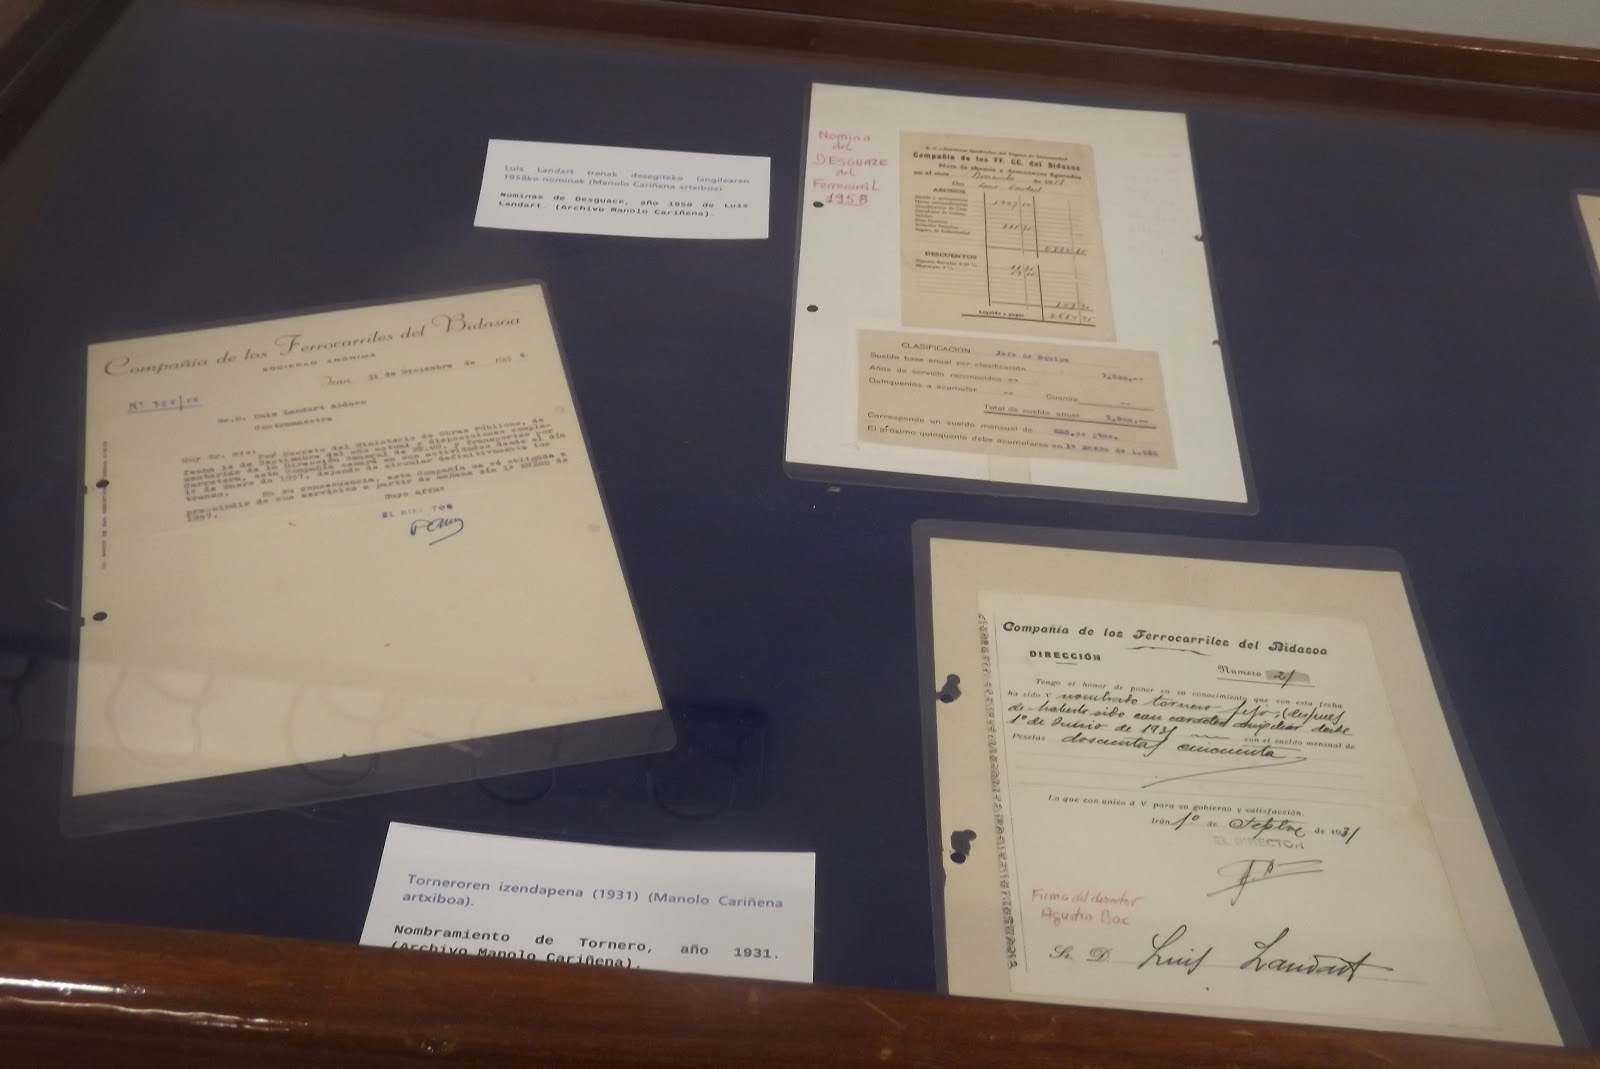 Luis Landart trenak desegiteko langilearen
1958ko nominak (Manolo Cariñena artxiboa).
Nominas de Desguace, año 1958 de Luis
Landart. (Archivo Manolo Cariñena).
Nomina
del
DESGUAZE
del
Ferrocarril
1958
Compañía de los FF. CC. del Bidasoa
Nota de abonos y descuentos
en el mes
Don Luis Landart
ABONOS
DESCUENTOS
Líquido a pagar
CLASIFICACION Jefe de Equipo
Sueldo base anual por clasificación
Años de servicio reconocidos --
Quinquenios a acumular -- Cuantía --
Total de sueldo anual
Corresponde un sueldo mensual de ptas.
El próximo quinquenio debe acumularse en 1º Enero de
Compañía de los Ferrocarriles del Bidasoa
SOCIEDAD ANÓNIMA
Irun, 31 de Diciembre de 195 6
Sr.D. Luis Landart Aldaco
Contramaestre
Muy Sr. mio: Por Decreto del Ministerio de Obras Públicas, de
fecha 14 de Septiembre del año actual y disposiciones comple-
mentarias de la Dirección General de FF.CC. y Transportes por
Carretera, esta Compañía cesará en sus actividades desde el día
1º de Enero de 1957, dejando de circular definitivamente los
trenes. En su consecuencia, esta Compañía se vé obligada a
prescindir de sus servicios a partir de mañana día 1º ENERO de
1957.
Suyo affmo
EL DIRECTOR
Compañía de los Ferrocarriles del Bidasoa
DIRECCIÓN
Número 21
Tengo el honor de poner en su conocimiento que con esta fecha
ha sido V nombrado tornero fijo, (después
de haberlo sido con carácter desde
1º de Junio de 1931 con el sueldo mensual de
Pesetas doscientas cincuenta
Lo que comunico á V. para su gobierno y satisfacción.
Irún 1º de Septbre de 1931
EL DIRECTOR
Firma del director
Agustin
Sr. D. Luis Landart
Torneroren izendapena (1931) (Manolo Cariñena
artxiboa).
Nombramiento de Tornero, año 1931.
(Archivo Manolo Cariñena).